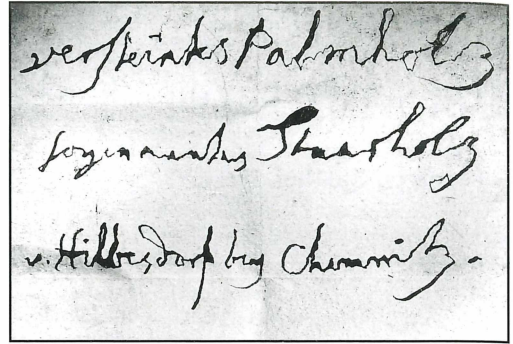 versteintes Palmholz
sogenanntes Staarholz
v. Hilbersdorf bey Chemnitz.